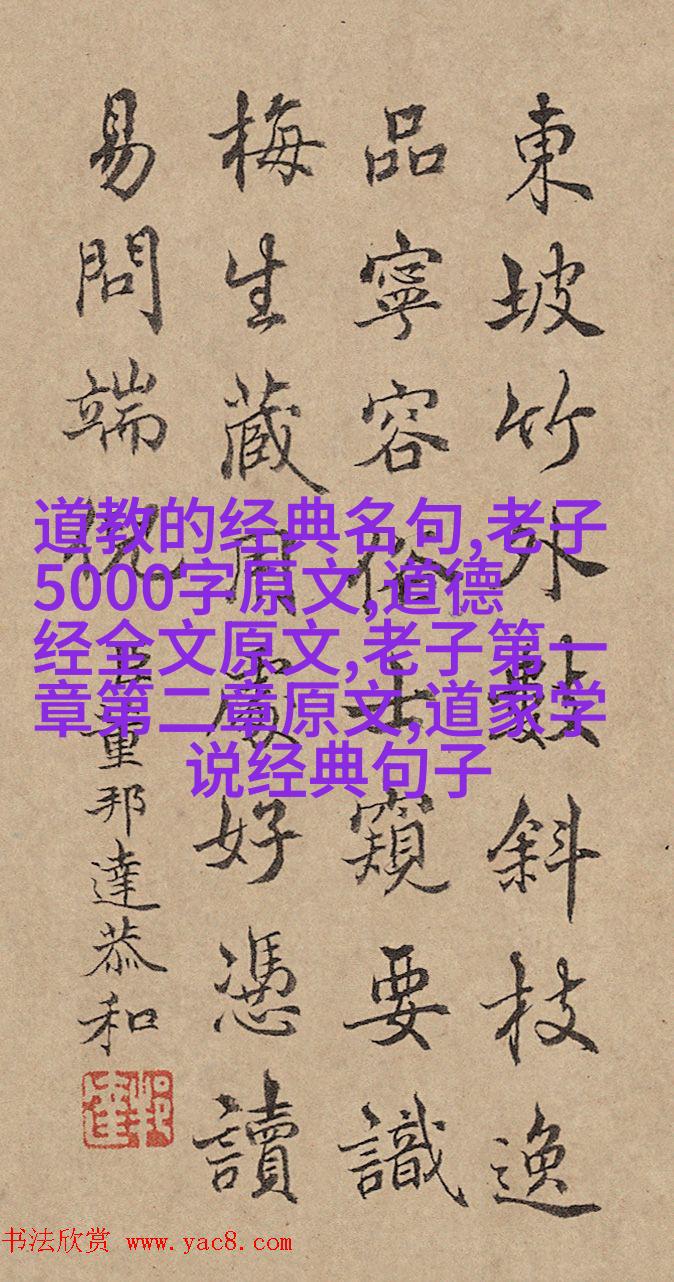 東坡竹外數斜枝逸
品寧容俗士窺要識
梅生藏用處好憑讀
易問端倪
臣董邦達恭和
道教的经典名句,老子
5000字原文,道德
经全文原文,老子第一
章第二章原文,道家学
说经典句子
书法欣赏 www.yac8.com